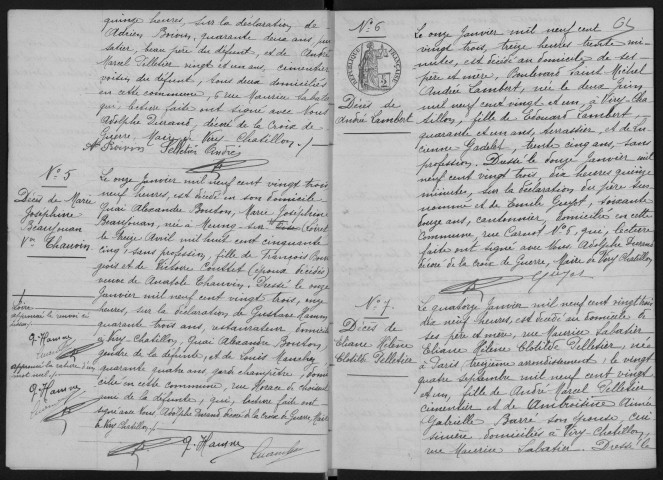 quinze heures, sur la déclaration de
Adrien Boivin, quarante deux ans,
beau père du défunt, et de André
Marcel Pelletier vingt et un ans, cimentier
voisin du défunt, tous deux domiciliés
en cette commune, 6 rue Maurice Sabatier
qui, lecture faite ont signé avec Nous
Adolphe Durand, décoré de la Croix de
Guerre, Maire de Viry-Chatillon./.
A. Boivin Pelletier André
N° 5
Décès de Marie
Joséphine
Beaujouan
Vve Chauvin
Le onze Janvier mil neuf cent vingt trois
neuf heures, est décédée en son domicile
Quai Alexandre Bouton, Marie Joséphine
Beaujouan, née à Meung-sur-Loire (Loiret
le treize Avril mil huit cent cinquante
cinq, sans profession, fille de François
et de Victoire (époux décédés)
veuve de Anatole Chauvin. Dressé le onze
Janvier mil neuf cent vingt trois,
heures, sur la déclaration de Gustave Hamner
quarante trois ans, restaurateur domicilié
à Viry-Chatillon, Quai Alexandre Bouton,
gendre de la défunte, et de Louis
quarante quatre ans, garde champêtre, domi
cilié en cette commune, rue Horace de Choiseul
de la défunte, qui, lecture faite ont
signé avec Nous, Adolphe Durand décoré de la Croix de Guerre, Maire
de Viry-Chatillon./.
Loire
approuvé le renvoi ci
G. Hamner
approuvé la rature d'un
mot nul
G. Hamner
G. Hamner
N° 6
RÉPUBLIQUE FRANÇAISE
Décès de
André Lambert
Le onze Janvier mil neuf cent
vingt trois, treize heures trente mi
nutes, est décédé au domicile de ses
père et mère, Boulevard Saint Michel
André Lambert, né le deux Juin
mil neuf cent vingt et un, à Viry-Cha
tillon, fils de Édouard Lambert,
quarante et un ans, terrassier, et de Lu
cienne Gadelet, trente cinq ans, sans
profession. Dressé le douze Janvier mil
neuf cent vingt trois, dix heures quinze
minutes, sur la déclaration du père sus
nommé et de Emile Guyot, soixante
douze ans, cantonnier, domicilié en cette
commune, rue Carnot N° 5, qui, lecture
faite ont signé avec Nous Adolphe Durand
décoré de la croix de Guerre, Maire de Viry-Chatillon
Guyot
N° 7.
Décès de
Eliane Hélène
Clotilde Pelletier
Le quatorze Janvier mil neuf cent vingt trois
dix neuf heures, est décédée au domicile de
ses père et mère, rue Maurice Sabatier
Eliane Hélène Clotilde Pelletier, née
à Paris, treizième arrondissement, le vingt
quatre Septembre mil neuf cent vingt
et un, fille de André Marcel Pelletier
cimentier et de Ambroisine Aimée
Gabrielle Barré son épouse, cui
sinière domiciliés à Viry-Chatillon,
rue Maurice Sabatier. Dressé le